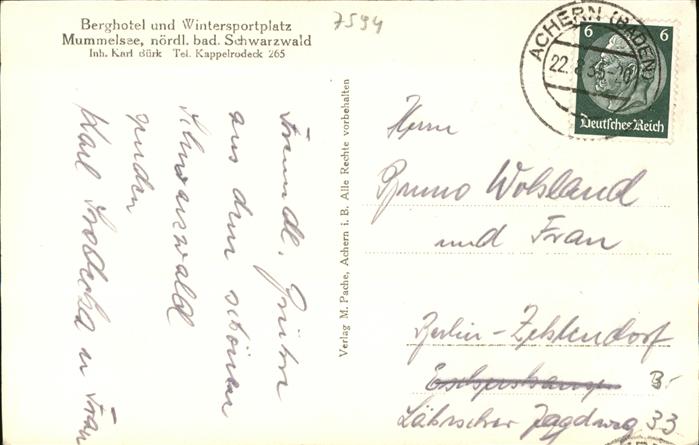 Berghotel und Wintersportplatz
Mummelsee, nördl. bad. Schwarzwald
Inh. Karl Bürk Tel. Kappelrodeck 265
7594
ACHERN (BADEN)
22. 8. 35
6 6
Deutsches Reich
Freundl. Grüße
aus dem schönen
Schwarzwald
senden
Karl u Frau
Verlag M. Pache, Achern i. B. Alle Rechte vorbehalten
Herrn
Bruno Wohsland
und Frau
Berlin-Zehlendorf
B.
Lähr Jagdweg 33